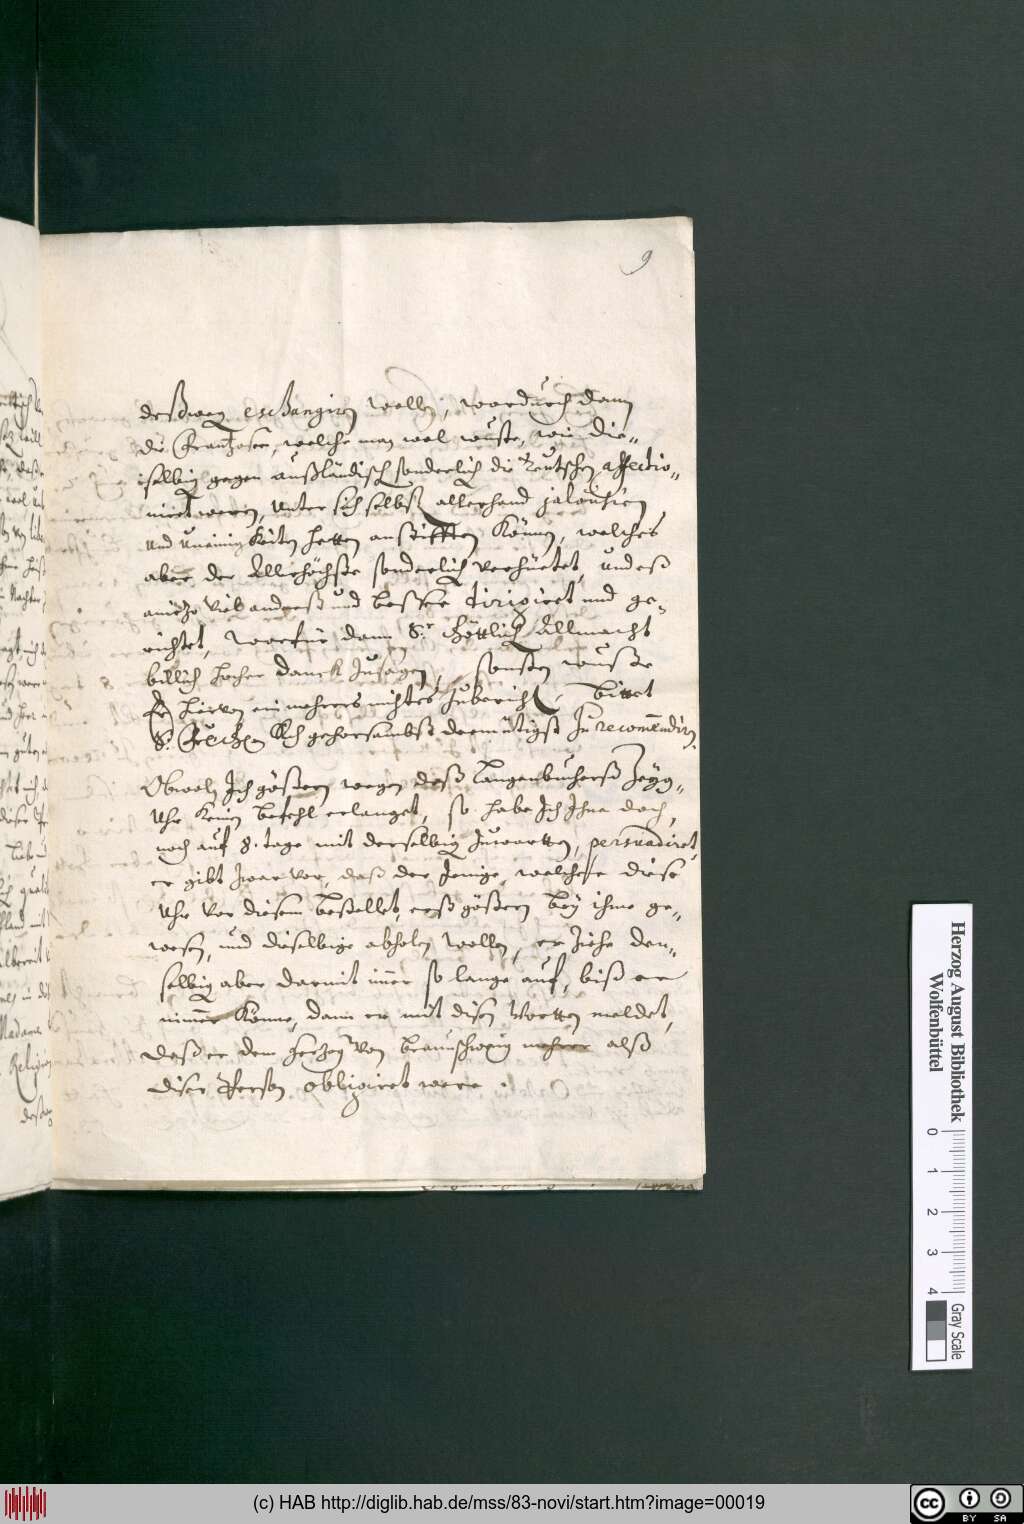 9
deßweg eschangiren wollen, wordurch dann
die Frantzosen, welche man wol wuste, wie die-,
selbig gegen außländisch sonderlich die Teutschen affectio-,
nirt weren, unter sich selbst allerhand jalousien
und uneinigkeiten hetten anstifften können, welches
aber der Allerhöchste sonderlich verhüetet, und eß
aniezo viel anderß und besser dirigiret und ge-,
richtet, worfür dann Sr. Göttlich Allmacht
billich hocher danck zusagen, sonsten wuste
Er hiervon ein mehrers nichtes zuberichten, bittet
S. Gn. sich gehorsambst demütigst zu recommendiren.
Obwoln Ich gestern wegen deß Langenbucherß Zeyg-,
Uhr keinen befehl erlanget, so habe Ich Ihne doch,
noch auf 8. tage mit derselbig zuwartten, persuadiret,
er gibt zwar vor, daß der Jenige, welcher diese
Uhr vor diesem bestellet, erst gestern bey ihme ge-,
wesen, und dieselbige abholen wollen, er ziehe den-,
selbig aber darmit immer so lange auf, biß er
nimmer könne, dann er mit disen Wortten meldet,
daß er dem Herzog von Braunschweig mehrer alß
diser Person obligiret were.
Herzog August Bibliothek
Wolfenbüttel
0 1 2 3 4
Gray Scale
(c) HAB http://diglib.hab.de/mss/83-novi/start.htm?image=00019
cc BY SA